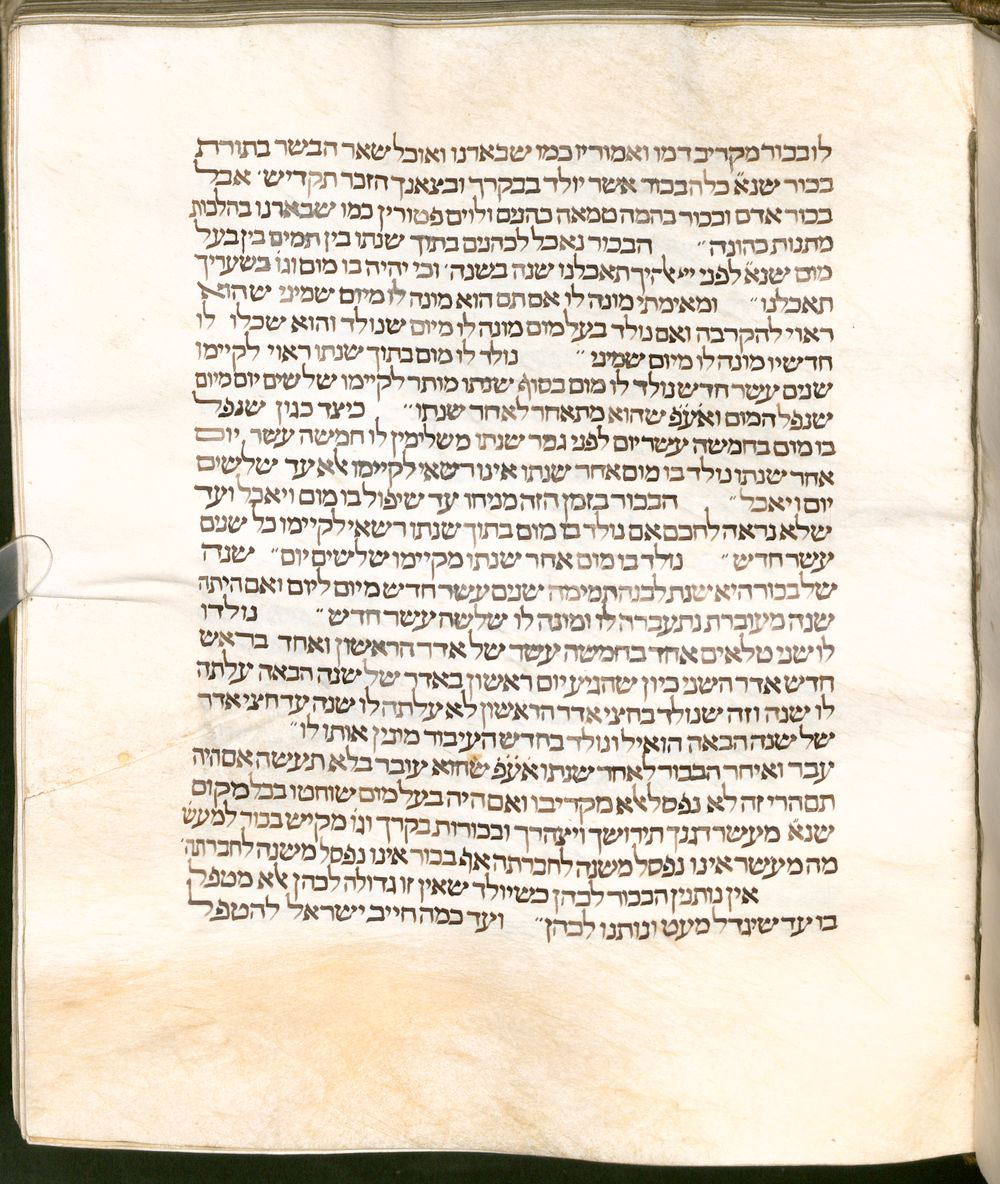 לו בכור מקריב דמו ואמוריו כמו שבארנו ואוכל שאר הבשר בתורת
בכור שנא׳ כל הבכור אשר יולד בבקרך ובצאנך הזכר תקדיש׳ אבל
בכור אדם ובכור בהמה טמאה כהנים ולוים פטורין כמו שבארנו בהלכות
מתנות כהונה״ הבכור נאכל לכהנים בתוך שנתו בין תמים בין בעל
מום שנא׳ לפני ייי אלהיך תאכלנו שנה בשנה׳ וכי יהיה בו מום וגו׳ בשעריך
תאכלנו״ ומאימתי מונה לו אם תם הוא מונה לו מיום שמיני שהוא
ראוי להקרבה ואם נולד בעל מום מונה לו מיום שנולד והוא שכלו לו
חדשיו מונה לו מיום שמיני״ נולד לו מום בתוך שנתו ראוי לקיימו
שנים עשר חדש נולד לו מום בסוף שנתו מותר לקיימו שלשים יום מיום
שנפל המום ואע״פ שהוא מתאחר לאחר שנתו״ כיצד כגון שנפל
בו מום בחמשה עשר יום לפני גמר שנתו משלימין לו חמשה עשר יום
אחר שנתו נולד בו מום אחר שנתו אינו רשאי לקיימו אלא עד שלשים
יום ויאכל״ הבכור בזמן הזה מניחו עד שיפול בו מום ויאכל ועד
שלא נראה לחכם אם נולד בו מום בתוך שנתו רשאי לקיימו כל שנים
עשר חדש״ נולד בו מום אחר שנתו מקיימו שלשים יום״ שנה
של בכור היא שנת לבנה תמימה שנים עשר חדש מיום ליום ואם היתה
שנה מעוברת נתעברה לו ומונה לו שלשה עשר חדש״ נולדו
לו שני טלאים אחד בחמשה עשר של אדר הראשון ואחד בראש
חדש אדר השני כיון שהגיע יום ראשון באדר של שנה הבאה עלתה
לו שנה וזה שנולד בחצי אדר הראשון לא עלתה לו שנה עד חצי אדר
של שנה הבאה הואיל ונולד בחדש העיבור מונין אותו לו״
עבר ואיחר הבכור לאחר שנתו אע״פ שהוא עובר בלא תעשה אם היה
תם הרי זה לא נפסל אלא מקריבו ואם היה בעל מום שוחטו בכל מקום
שנא׳ מעשר דגנך תירושך ויצהרך ובכורות בקרך וגו׳ מקיש בכור למעש׳
מה מעשר אינו נפסל משנה לחברתה אף בכור אינו נפסל משנה לחברתה׳
אין נותנין הבכור לכהן כשיולד שאין זו גדולה לכהן אלא מטפל
בו עד שיגדל מעט ונותנו לכהן״ ועד כמה חייב ישראל להטפל